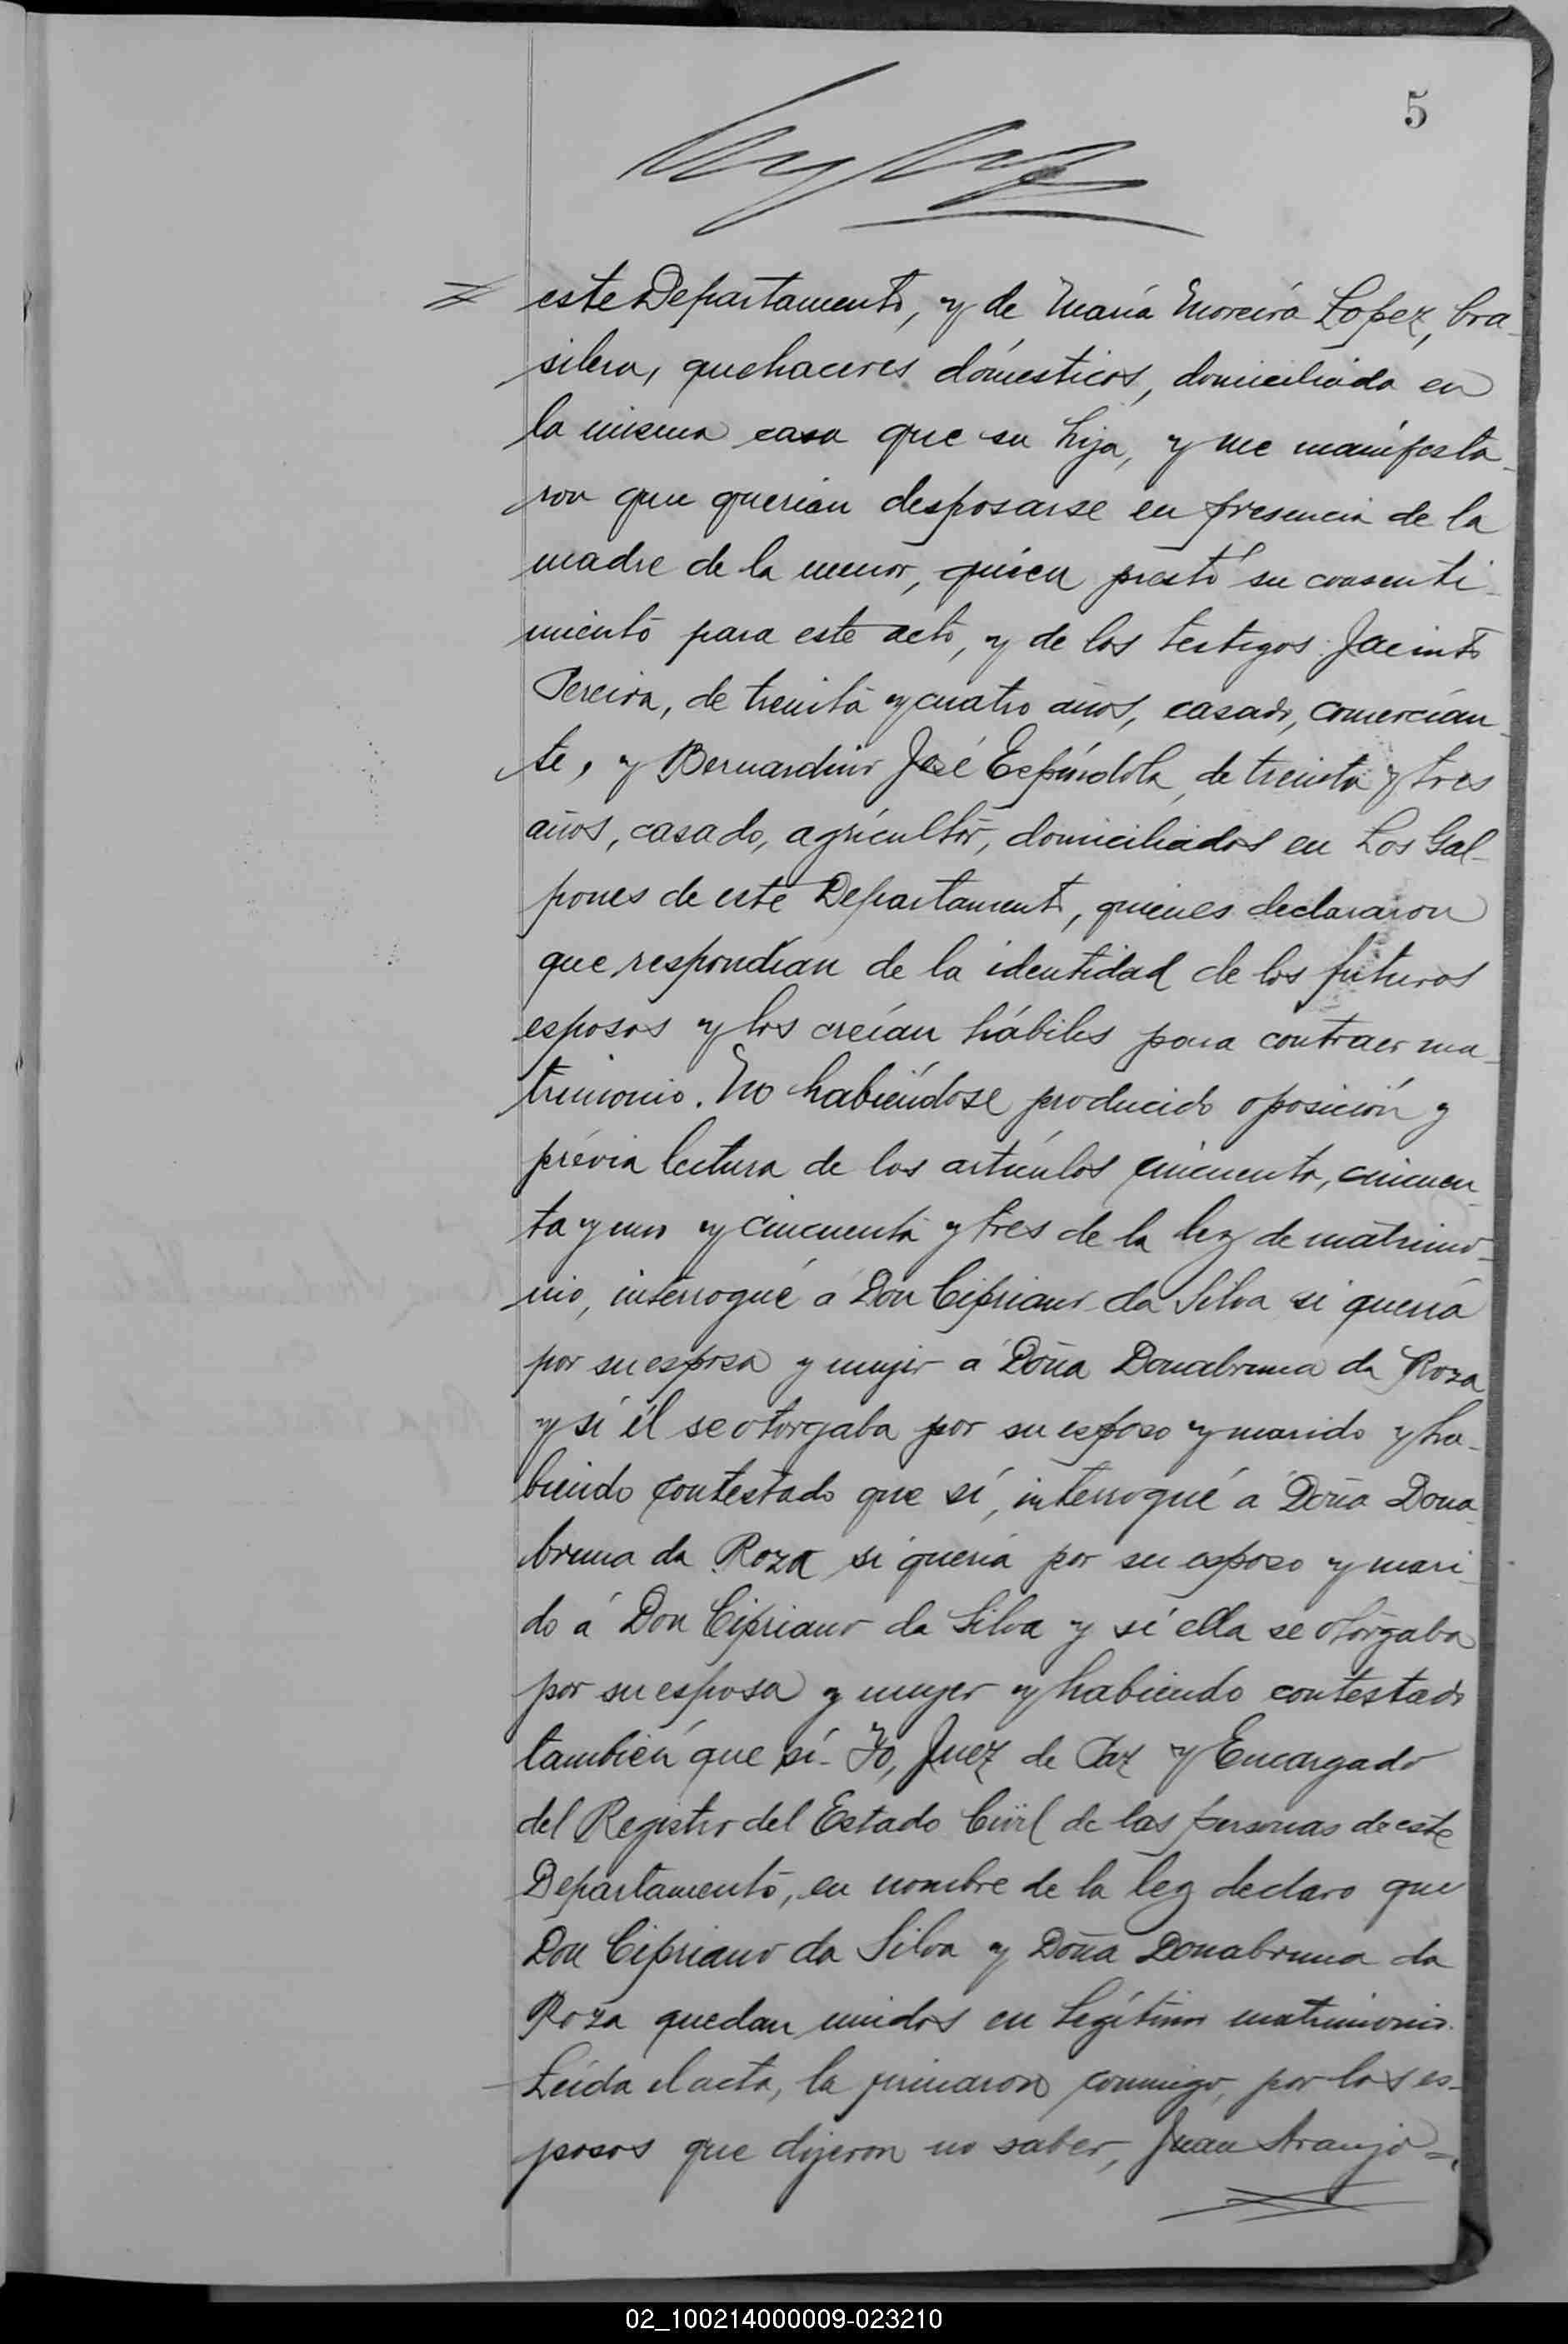 5
este Departamento, y de María Moreira Lopez, bra-
silera, quehaceres domésticos, domiciliada en
la misma casa que su hija, y me manifesta-
ron que querían desposarse en presencia de la
madre de la menor, quien prestó su consenti-
miento para este acto, y de los testigos: Jacinto
Pereira, de treinta y cuatro años, casado, comercian-
te, y Bernardino José Espíndola, de treinta y tres
años, casado, agricultor, domiciliados en Los Gal-
pones de este Departamento, quienes declararon
que respondían de la identidad de los futuros
esposos y los creían hábiles para contraer ma-
trimonio. No habiéndose producido oposición y
prévia lectura de los artículos cincuenta, cincuen-
ta y uno y cincuenta y tres de la ley de matrimo-
nio, interrogué á Don Cipriano da Silva si quería
por su esposa y mujer á Doña Donabruna da Roza
y si él se otorgaba por su esposo y marido y ha-
biendo contestado que sí, interrogué á Doña Dona-
bruna da Roza si quería por su esposo y mari-
do á Don Cipriano da Silva y si ella se otorgaba
por su esposa y mujer y habiendo contestado
también que sí. Yo, Juez de Paz y Encargado
del Registro del Estado Civil de las personas de este
Departamento, en nombre de la ley declaro que
Don Cipriano da Silva y Doña Donabruna da
Roza quedan unidos en legítimo matrimonio.
Leída el acta, la firmaron conmigo, por los es-
posos que dijeron no saber, Juan Araujo
02_100214000009-023210